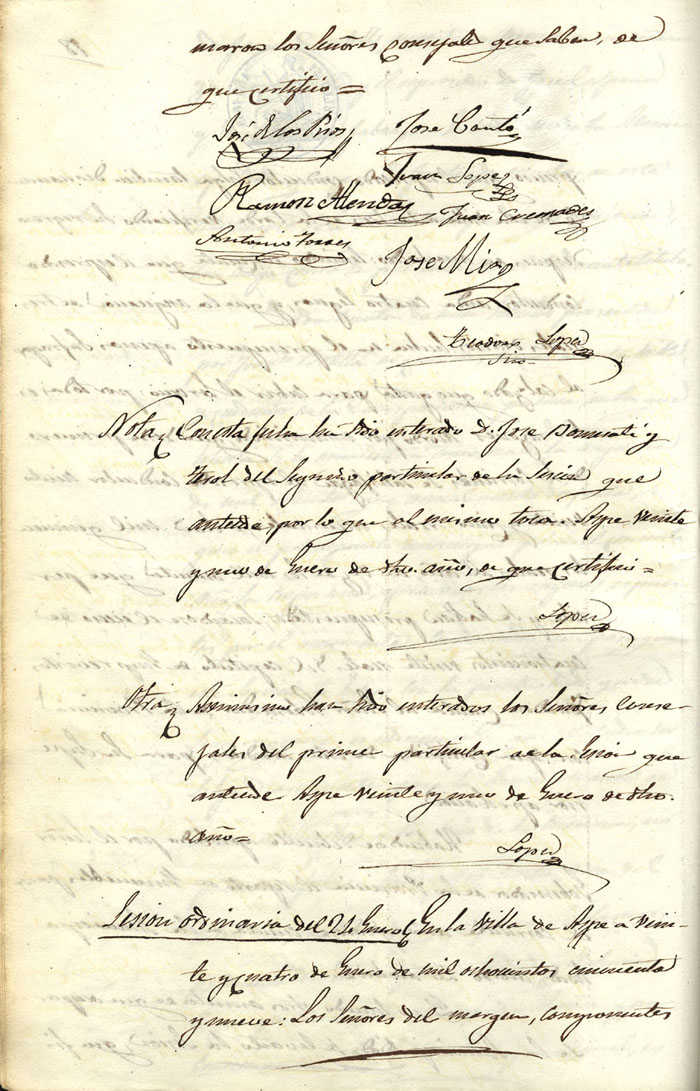 maron los Señores Consejale que saben, de
que certifico =
José de los Rios José Cantó
Juan Lopez
Ramon Alenda Juan Cremades
Antonio Torres
Jose Miro
Teodoro Lopez
Srio
Nota Con esta fecha ha sido enterado D. Jose y
Terol del Segundo particular de la Sesion que
antecede, por lo que al mismo toca. Aspe veinte
y nueve de Enero de dho. año, de que certifico =
Lopez
Otra Asimismo han sido enterados los Señores Conse-
jales del primer particular de la Sesion que
antecede Aspe veinte y nueve de Enero de dho.
año =
Lopez
Sesion ordinaria del 24 Enero En la villa de Aspe a vein-
te y cuatro de Enero de mil ochocientos cincuenta
y nueve: Los Señores del margen, componentes